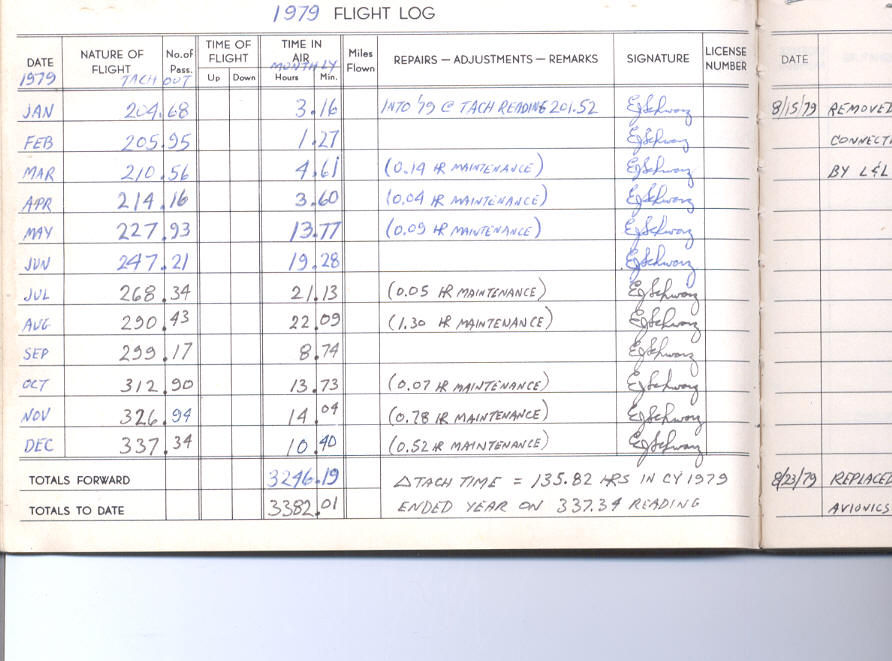 1979 FLIGHT LOG
DATE NATURE OF FLIGHT No. of Pass. TIME OF FLIGHT Up Down TIME IN AIR Hours Min. Miles Flown REPAIRS — ADJUSTMENTS — REMARKS SIGNATURE LICENSE NUMBER DATE
1979 TACH OUT MONTHLY
JAN 204.68 3.16 INTO '79 @ TACH READING 201.52 EJSchwarz 8/15/79 REMOVED
FEB 205.95 1.27 EJSchwarz CONNECT
MAR 210.56 4.61 (0.19 HR MAINTENANCE) EJSchwarz BY L&L
APR 214.16 3.60 (0.04 HR MAINTENANCE) EJSchwarz
MAY 227.93 13.77 (0.09 HR MAINTENANCE) EJSchwarz
JUN 247.21 19.28 EJSchwarz
JUL 268.34 21.13 (0.05 HR MAINTENANCE) EJSchwarz
AUG 290.43 22.09 (1.30 HR MAINTENANCE) EJSchwarz
SEP 299.17 8.74 EJSchwarz
OCT 312.90 13.73 (0.07 HR MAINTENANCE) EJSchwarz
NOV 326.94 14.04 (0.78 HR MAINTENANCE) EJSchwarz
DEC 337.34 10.40 (0.52 HR MAINTENANCE) EJSchwarz
TOTALS FORWARD 3246.19 ΔTACH TIME = 135.82 HRS IN CY 1979 8/23/79 REPLACED
TOTALS TO DATE 3382.01 ENDED YEAR ON 337.34 READING AVIONICS